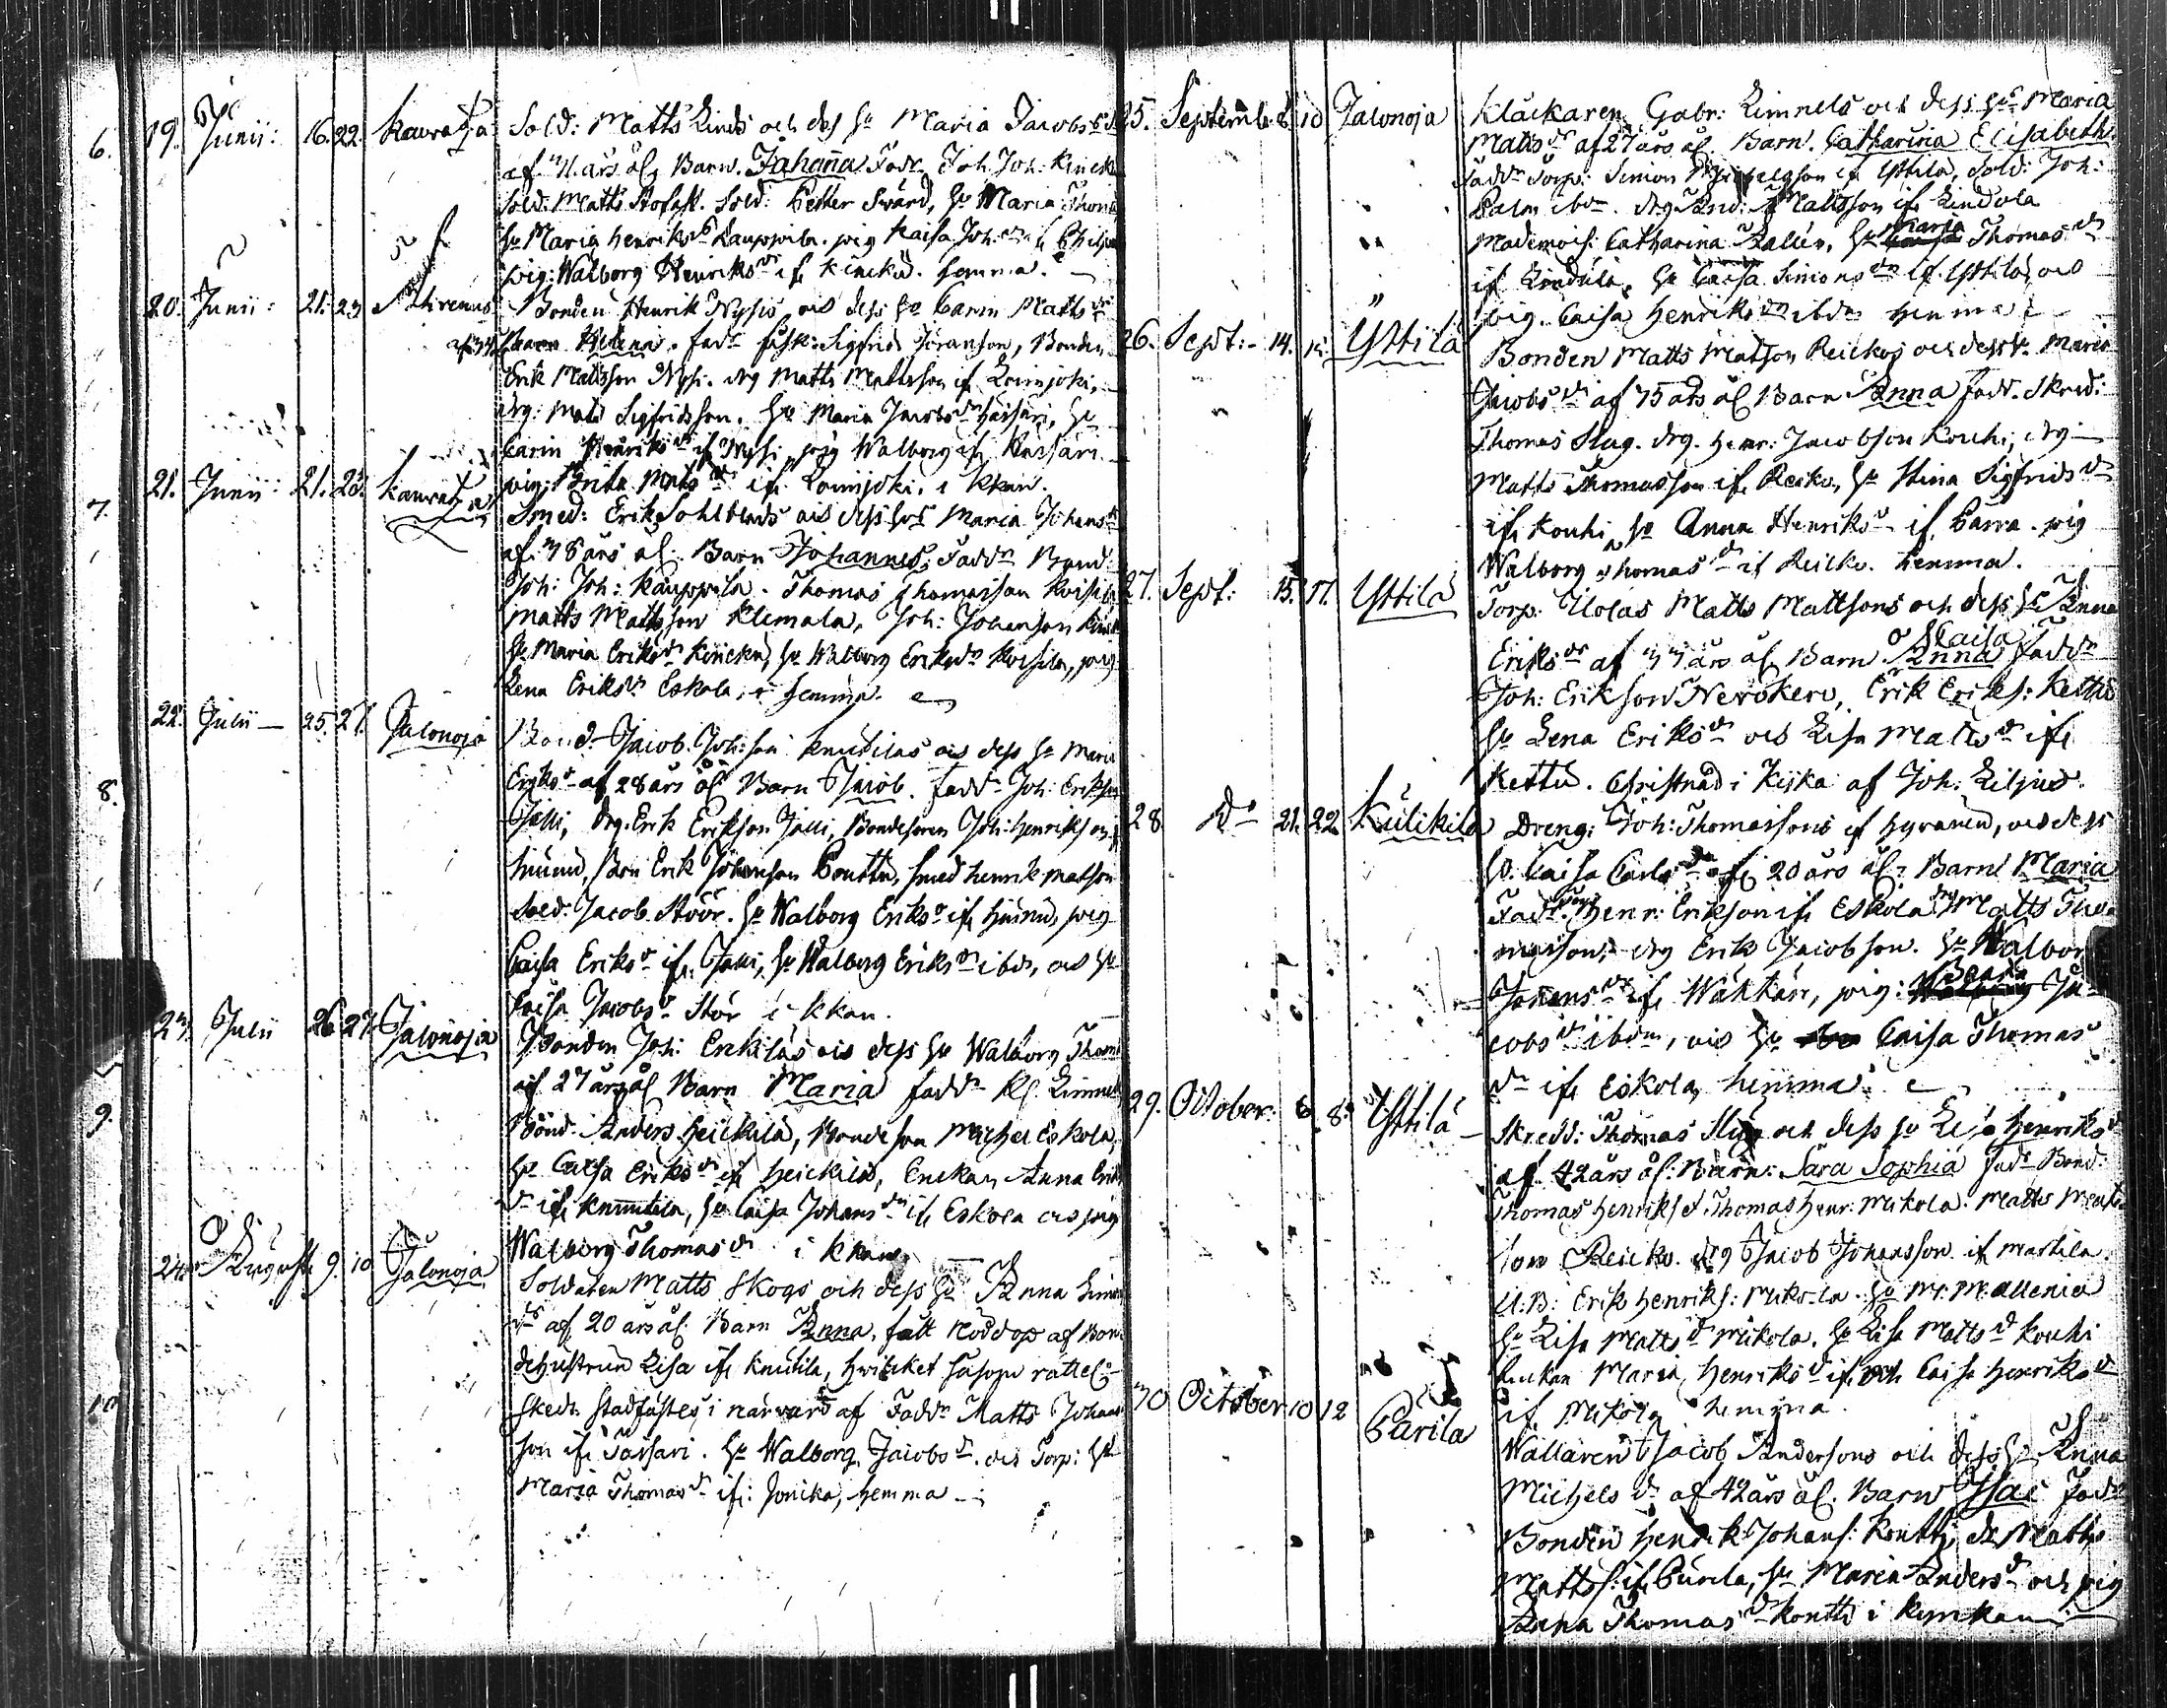 6. 19. Junii: 16. 22. Kauvatza Sold: Matts Linds och des h: Maria Jacobs dr
af 41. års ål, Barn. Johanna. Fadr. Joh. Joh: Kinck
Sold: Matts Stofast. Sold: Petter Swärd, h: Maria Thom
h: Maria Henriksdr Kauppila. pig Kaisa Joh:
pig: Walborg Henriksdr if: hemma.
20. Junii: 21. 23 Bonden Henrik Nysis och dess h: Carin Mattsdr
Barn Helena. fadr Sigfrid Jöranson, Bonden
Erik Mattsson Nysi. drg Matts Mattsson if Lounjoki,
drg: Mats Sigfridsson. h: Maria Jacobsdr Hassari, h:
Carin Henriksdr if Nysi, pig Walborg if Kassari
21. Junii: 21. 23. Kauvatza pig: Brita Matsdr if: Lounjoki. i Kkan.
7. Smed: Erik Sohlbloms och dess h: Maria Johansdr
af 38 års ål. Barn Johannes, Fadr Bond:
Joh: Joh: Kauppila. Thomas Thomasson Koisila
Matts Mattsson Klemala, Joh: Johansson
h: Maria Eriksdr h: Walborg Eriksdr Koisila, pig
Lena Eriksdr Eskola, i hemma.
22. Julii — 25. 27. Jalonoja Bond. Jacob Joh:son Knutilas och dess h: Maria
8. Eriksdr af 28 års ål Barn Jacob. fadr Joh: Erikson
Jalli, drg. Erik Erikson Jalli, Bondesonen Joh: Henrikson if
Erik Johansson Pouttu, smed Henrik Matson
Sold: Jacob Stöör. h: Walborg Eriksdr if pig
Caisa Eriksdr if Jalli, h: Walborg Eriksdr ibdm, och h:
Caisa Jacobsdr Stör i kkan.
23. Julii 26 27. Jalonoja Bonden Joh: Erkilas och dess h: Walborg Thom
af 27 års ål Barn Maria fadr Kl. Limnel
9. Bond: Anders Heickilä, Bondeson Michel Eskola,
h: Caisa Eriksdr if Heickilä, Enckan Anna Erik
dr if: Knuutila, h: Caisa Johansdr if: Eskola och pig
Walborg Thomasdr i kkan.
24. Augusti 9. 10 Jalonoja Soldaten Matts Skogs och dess h: Anna Simons
dr af 20 års ål. Barn Anna, fått nöddop af Bon
dehustrun Lisa if: Knutila, hwilcket såsom rättel:
10 skedt stadfästes i närvaro af Fadr Matts Johans
son if: Tassari. h: Walborg Jacobsdr. och Torp: h:
Maria Thomasdr if: Jonika, hemma —
25. Septemb: 8 10 Jalonoja Klåckaren Gabr: Limnels och dess h: Maria
Mattsdr af 27 års ål. Barn. Catharina Elisabeth.
Fadr Torp: Simon Michelsson if Yttilä, Sold: Joh:
Palm ibdm. drg And: Mattsson if: Lindula
Mademois: Catharina Palén, h: Maria Thomasdr
if Lindula, h: Caisa Simonsdr if. Yttilä, och
pig. Caisa Henriksdr ibdm hemma
26. Sept: - 14. 15. Yttilä Bonden Matts Matson Reickos och dess h: Maria
Jacobsdr af 35 års ål Barn Anna fadr. Skred:
Thomas Slug. drg. Henr: Jacobson Kouhi, drg
Matts Thomasson if. Reiko, h: Stina Sigfridsdr
if. Kouhi, h: Anna Henriksdr if. Parra. pig
Walborg Thomasdr if Reiko. hemma.
27. Sept: 15. 17. Yttilä Torp: Uolas Matts Mattsons och dess h: Anna
Eriksdr af 33 års ål. Barn Anna Caisa Fadr
Joh: Erikson Neroken, Erik Eriks: Kettu
h: Lena Eriksdr och Lisa Mattsdr if:
Kettu. Christnad i af Joh: Liljus.
28. do 21. 22 Kulikila Dreng: Joh: Thomassons if Hyvänen, och dess
h. Caisa Carlsdr af 20 års ål. Barn Maria
Fadr Torp: Henr: Erikson if: Eskola, drg Matts Tho-
masson, drg Erik Jacobson. h: Walbor
Johansdr if. Wäktäri, pig: Beata Ja
cobsdr ibdm, och h: Caisa Thomas
dr if: Eskola, hemma.
29. October. 6 8. Yttilä Skredd: Thomas Slug och dess h: Lisa Henriksdr
af 42 års ål: Barn: Sara Sophia Fadr Bond:
Thomas Henriks Thomas Henr: Mikola. Matts Matts
son Reicko. drg Jacob Johansson if Martila.
U:B: Erik Henriks: Mikola. h: Mr: Mallenia
h: Lisa Mattsdr Mikola. h: Lisa Mattsdr Kouhi
Enckan Maria Henriksdr if: och Caisa Henriksdr
if Mikola hemma.
30 October 10 12 Parila Wallaren Jacob Andersons och dess h: Anna
Michelsdr af 42 års ål. Barn Isac Fadr
Bonden Henrik Johans: Koutti, dr. Matts
Matts: if Purila, h: Maria Andersdr och pig
Anna Thomasdr Kontti i kyrckan.